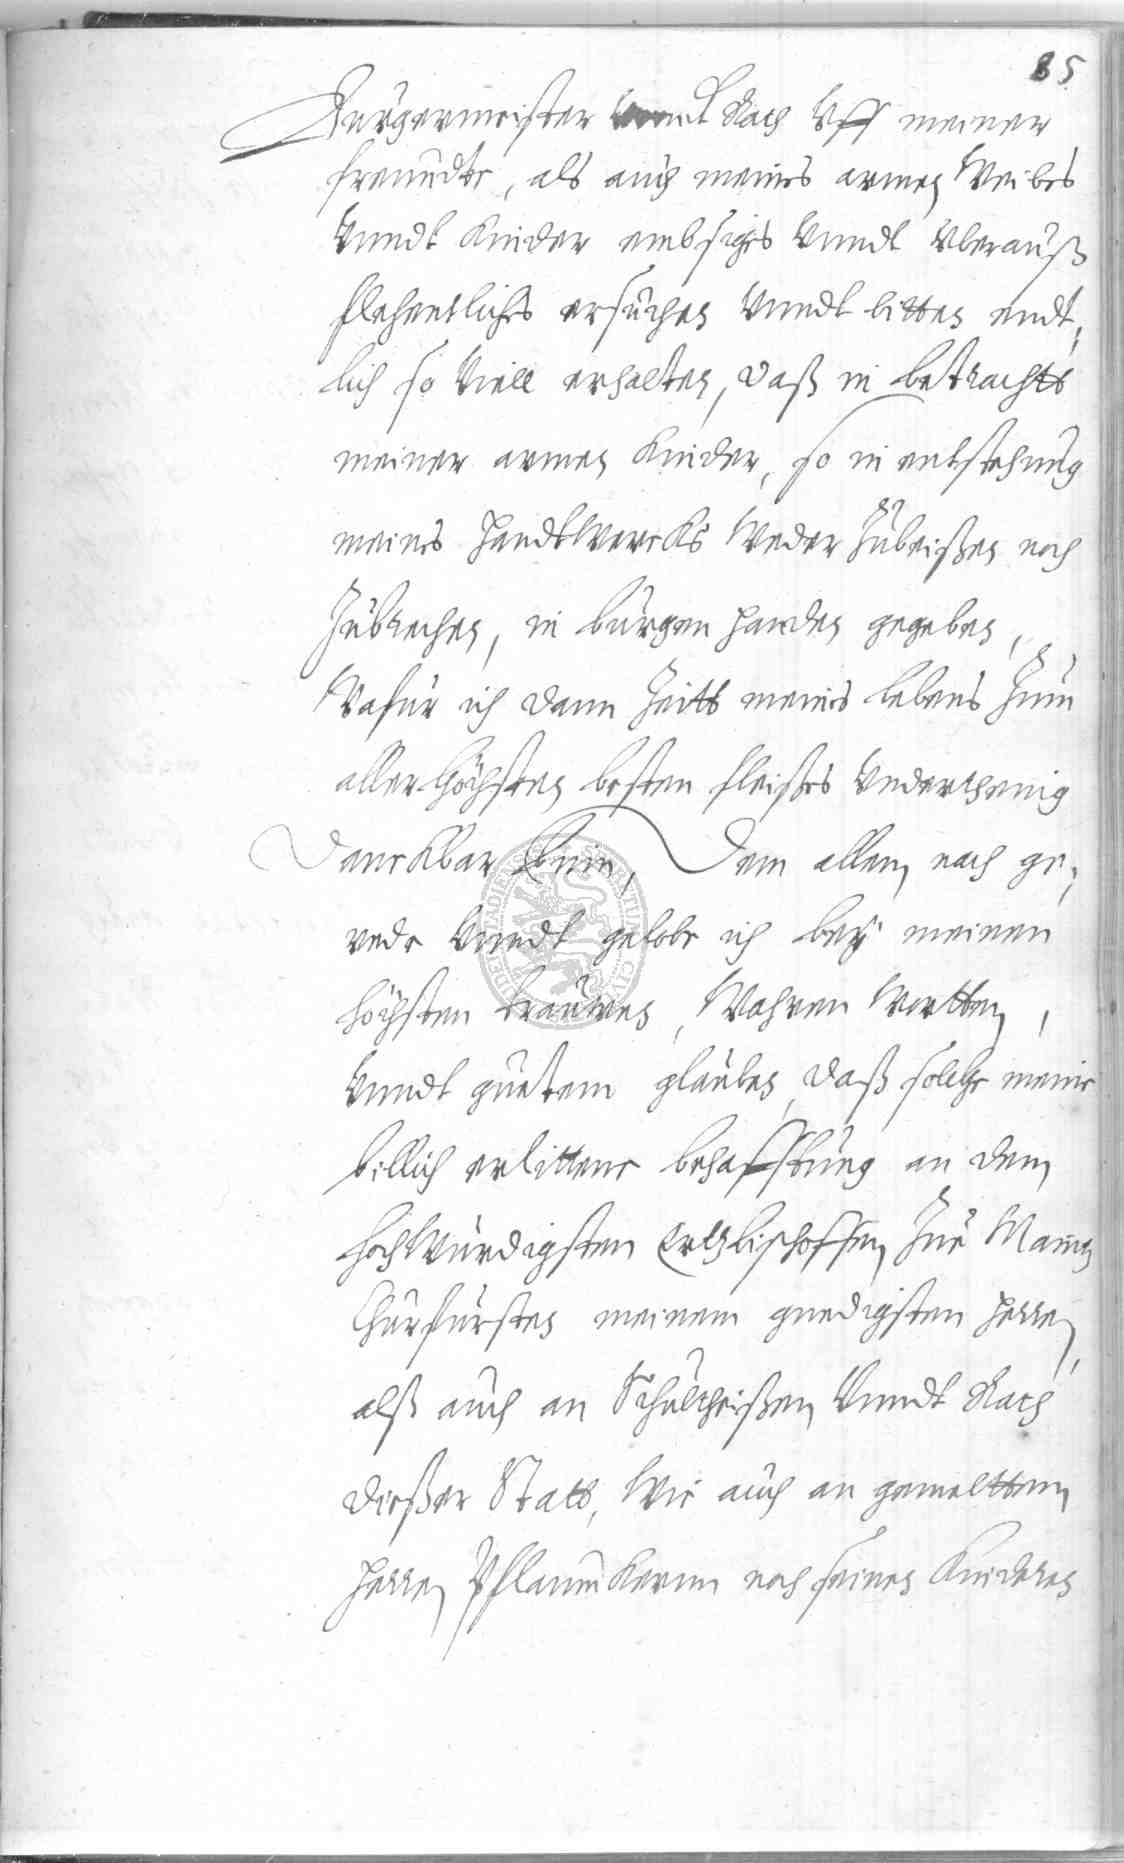 85
Bürgermeister vnndt Rath vff meiner
freundte, als auch meines armen Weibes
vnndt Kinder embsiges vnndt vberauß
flehentliches ersuchen vnndt bitten endt,
lich so viell erhalten, daß in betracht
meiner armen Kinder, so in entstehung
meines handtwercks weder Zubeißen noch
Zubrechen, in bürgen handen gegeben,
Wafür ich dann Zeitt meines lebens Zum
allerhöchsten besten fleißes vnderthenig
danckbar bin, Dem allem nach ge,
rede vnndt gelobe ich bey meinen
höchsten trauwen, Wahren Wortten,
vnndt guetem glauben, daß solche meine
billich erlittene behafftung an dem
hochwürdigsten Ertzbischoffen Zue Maintz
Churfürsten meinem gnedigsten herren,
alß auch an Schultheißen vnndt Rath
dießer Statt, Wie auch an gemelttem
herren Pflaumkern noch seinen Kinderen